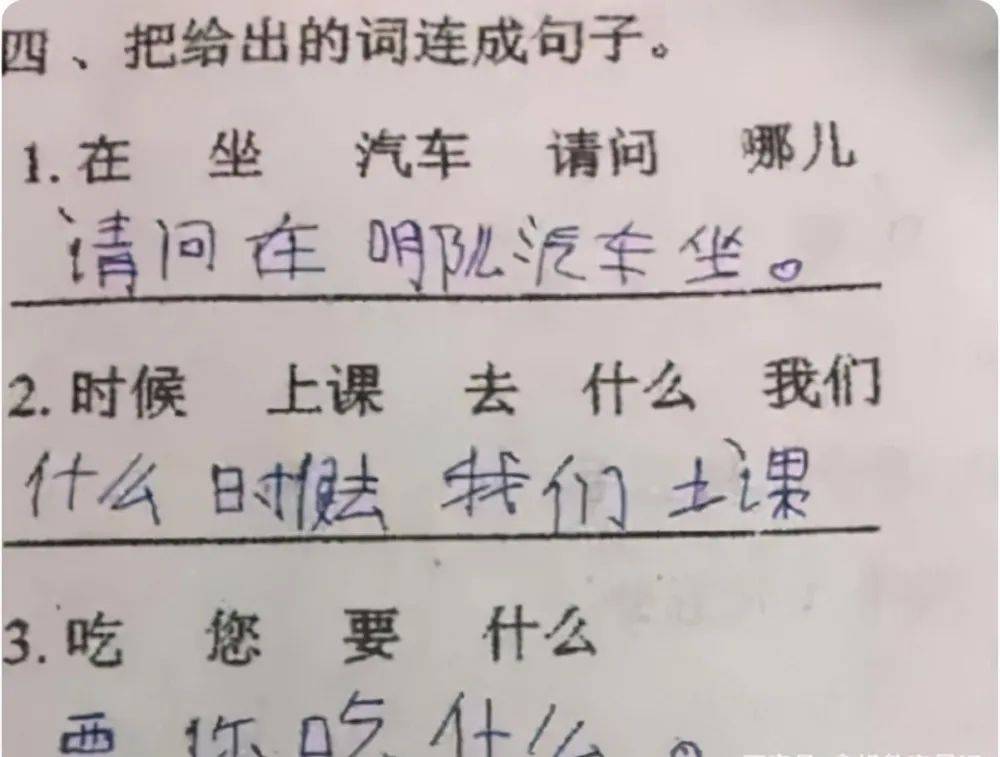 四、把给出的词连成句子。
1. 在 坐 汽车 请问 哪儿
请问在哪儿汽车坐。
2. 时候 上课 去 什么 我们
什么时候去我们上课
3. 吃 您 要 什么
要你吃什么。